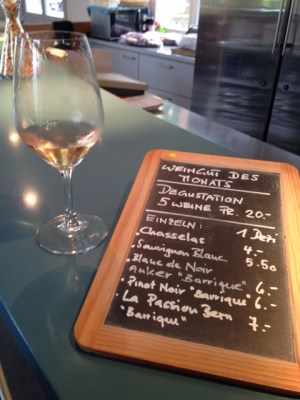 WEINGUT DES
MONATS
DEGUSTATION
5 WEINE FR. 20.-
EINZELN: 1 Dezi
• Chasselas 4.-
• Sauvignon Blanc 5.50
• Blanc de Noir
Anker "Barrique" 6.-
• Pinot Noir "Barrique" 6.-
• La Passion Bern
"Barrique" 7.-